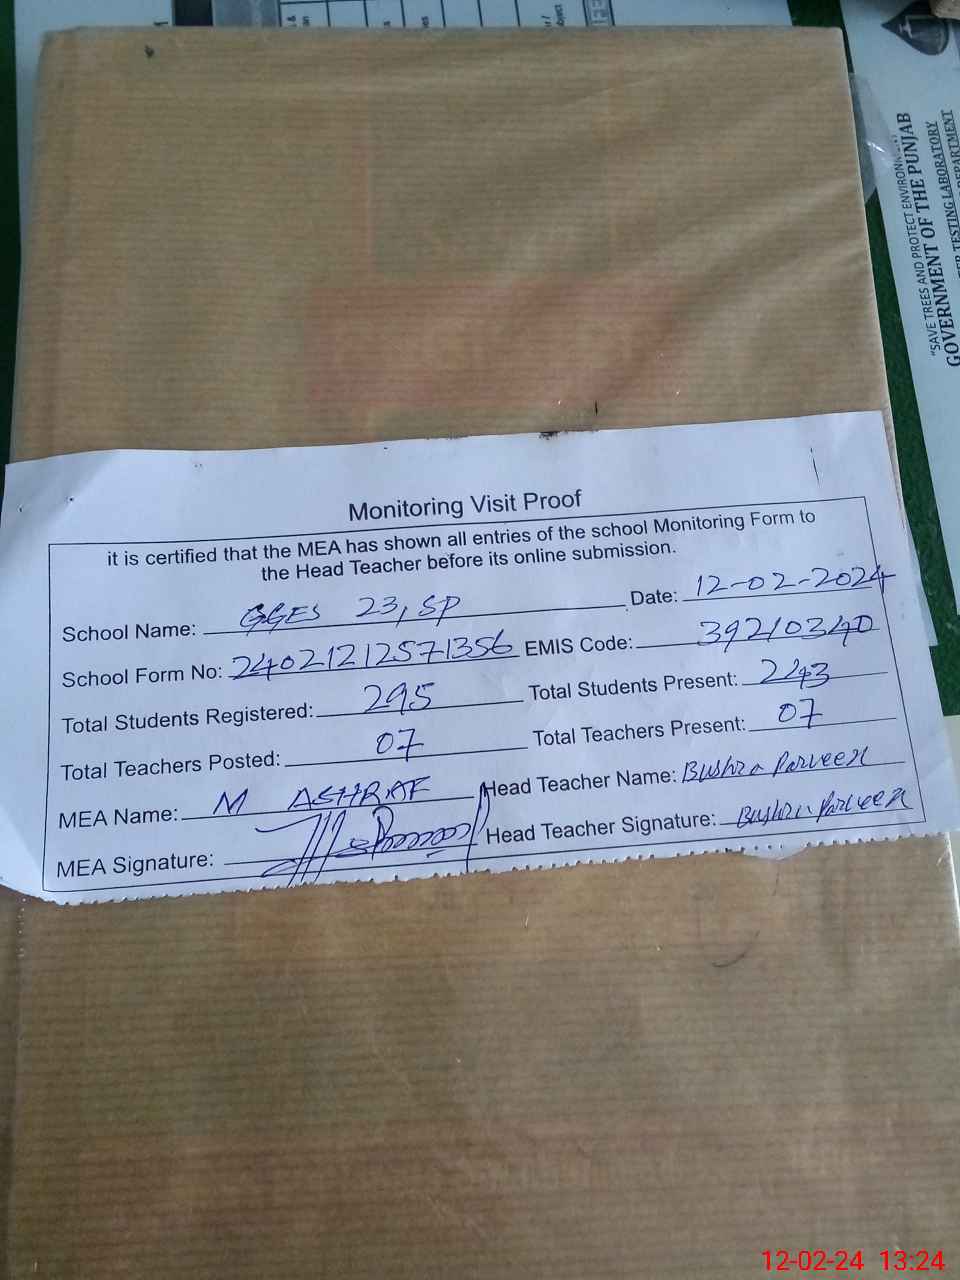 Monitoring Visit Proof
it is certified that the MEA has shown all entries of the school Monitoring Form to
the Head Teacher before its online submission.
School Name: GGES 23, SP Date: 12-02-2024
School Form No: 24021212571356 EMIS Code: 39210340
Total Students Registered: 295 Total Students Present: 243
Total Teachers Posted: 07 Total Teachers Present: 07
MEA Name: M ASHRAF Head Teacher Name: Bushra Parveen
MEA Signature: Head Teacher Signature: Bushra Parveen
"SAVE TREES AND PROTECT
GOVERNMENT OF THE PUNJAB
TESTING LABORATORY
DEPARTMENT
12-02-24 13:24